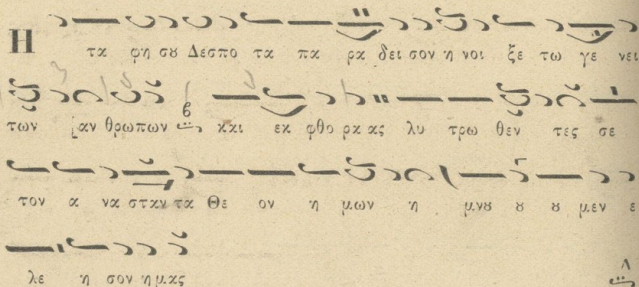 Η τα φη σου Δεσπο τα πα ρα δει σον η νοι ξε τω γε νει
των αν θρωπων και εκ φθο ρας λυ τρω θεν τες σε
τον α να σταν τα Θε ον η μων η μνου ου ου μεν ε
λε η σον ημας